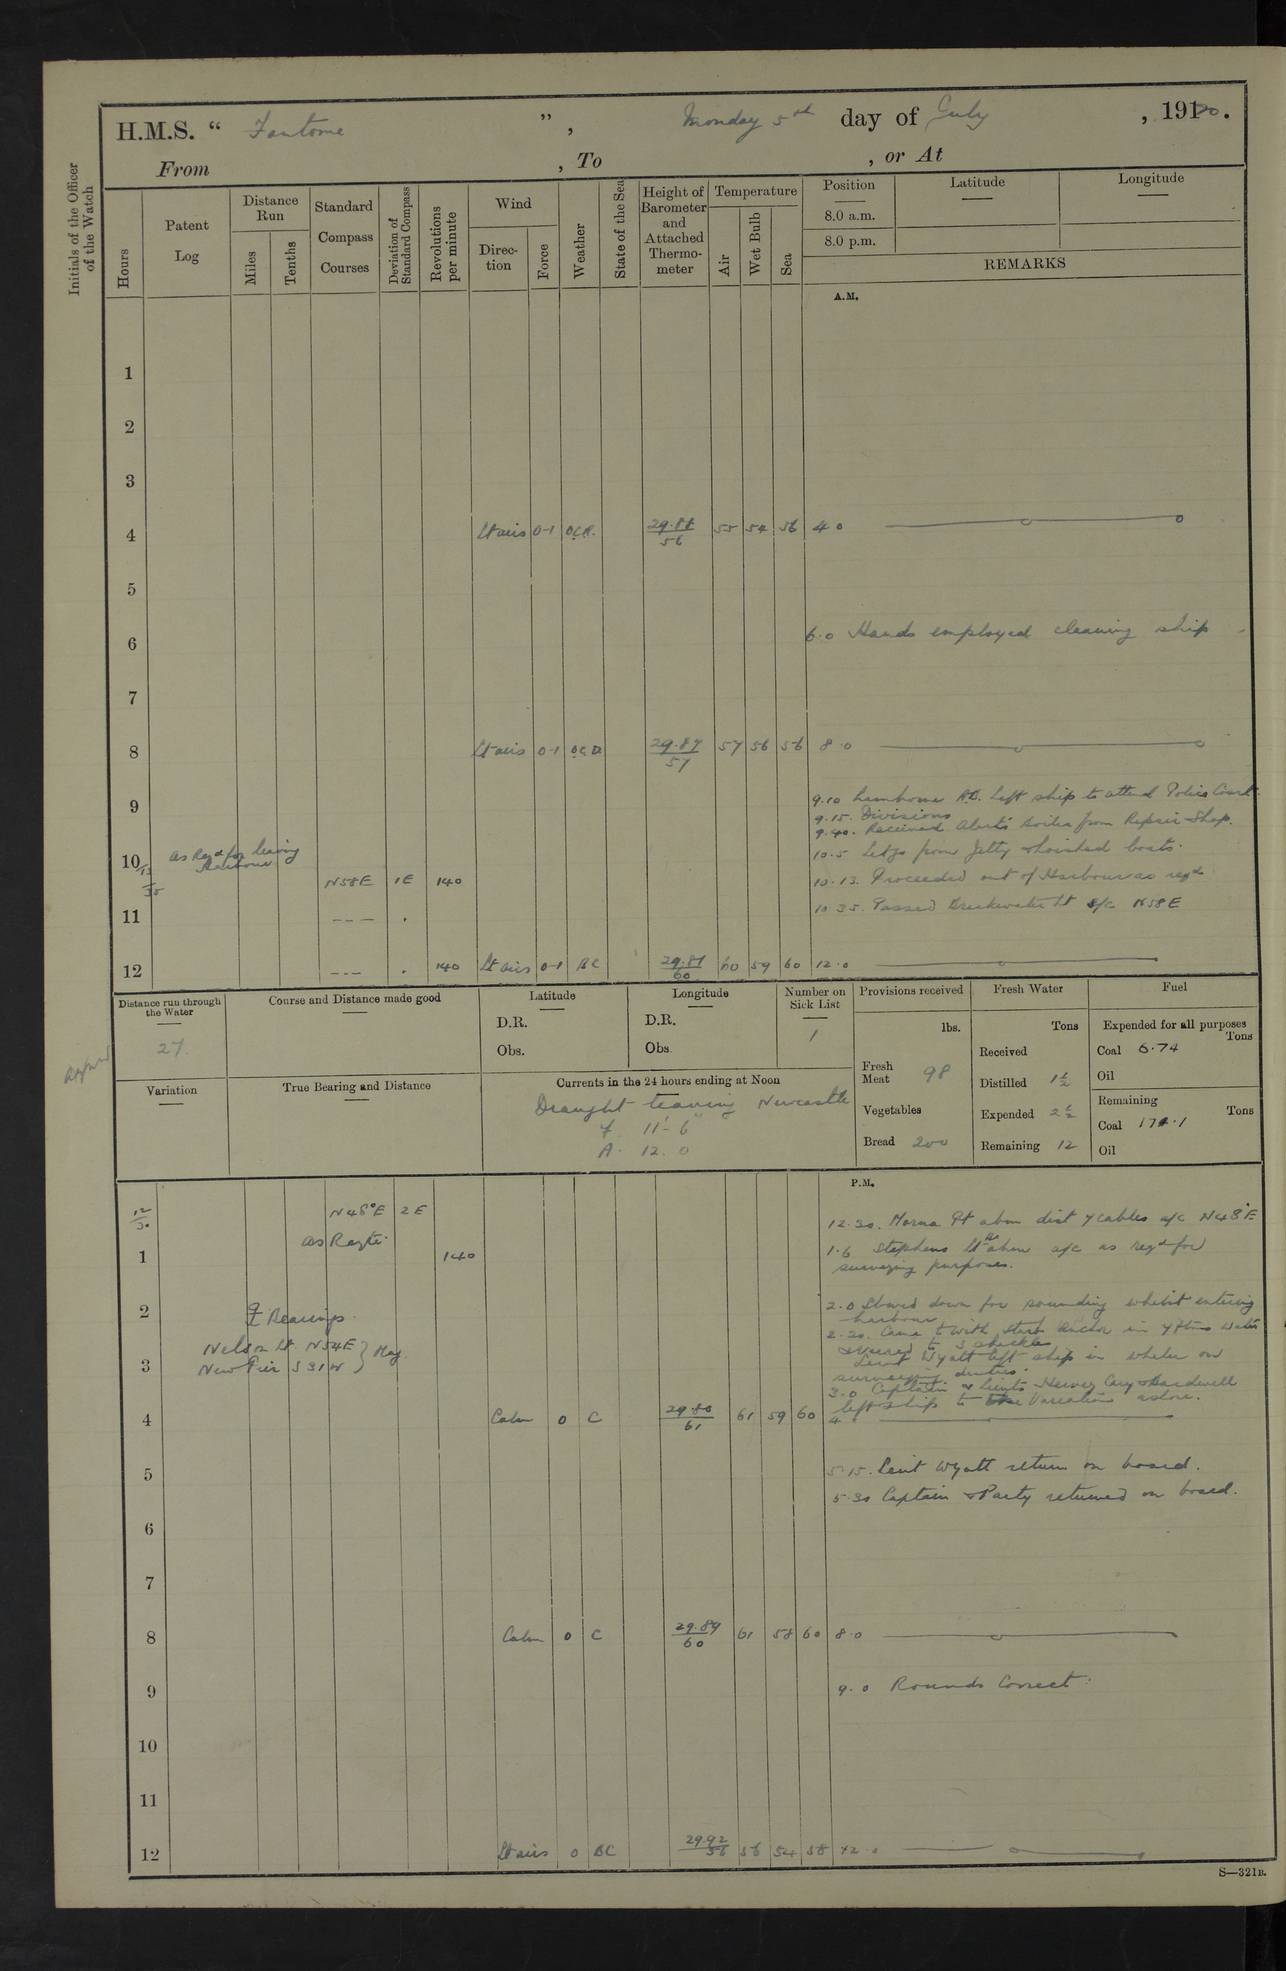 H.M.S. “ Fantome ” , Monday 5th day of July , 1920.
From , To , or At
Initials of the Officer of the Watch
Hours
Patent Log
Distance Run
Miles
Tenths
Standard Compass Courses
Deviation of Standard Compass
Revolutions per minute
Wind
Direction
Force
Weather
State of the Sea
Height of Barometer and Attached Thermometer
Temperature
Air
Wet Bulb
Sea
Position
8.0 a.m.
8.0 p.m.
Latitude
Longitude
REMARKS
A.M.
1
2
3
4 Lt airs 0-1 29.88 56 55 54 56 4.0
5
6 6.0 Hands employed cleaning ship
7
8 Lt airs 0-1 29.87 57 57 56 56 8.0
9 9.10 A.B. Left ship to attend Police Court.
9.15. Divisions
9.40. Received boiler from Repair Shop.
10/13 as Reqd for leaving Harbour
10.5 Let go from Jetty & hoisted boats.
35 N58E 1E 140 10.13. Proceeded out of Harbour as reqd
11 10.35. Passed Breakwater Lt a/c N58E
12 140 Lt airs 0-1 BC 29.81 60 60 59 60 12.0
Distance run through the Water
27
Course and Distance made good
Latitude
D.R.
Obs.
Longitude
D.R.
Obs.
Number on Sick List
1
Provisions received
lbs.
Fresh Meat 98
Vegetables
Bread 200
Fresh Water
Tons
Received
Distilled 1½
Expended 2½
Remaining 12
Fuel
Expended for all purposes
Tons
Coal 6.74
Oil
Remaining
Tons
Coal 171.1
Oil
Variation
True Bearing and Distance
Currents in the 24 hours ending at Noon
Draught leaving Newcastle
F. 11'-6"
A. 12. 0
P.M.
12/30 N48°E 2E 12.30. Morna Pt abm dist 7 cables a/c N48°E
as Reqte.
1 140 1.6 Stephens Lt abm a/c as reqd for
surveying purposes.
2 Bearings. 2.0 Slowed down for sounding whilst entering
harbour
Nelson Lt. N54E } Mag. 2.20. Came to with Starb Anchor in 7 ftms water
veered to 3 shackles
3 New Pier S31W Lieut Wyatt left ship in whaler on
surveying duties.
3.0 Captain & Lieuts Harvey Cary & Bardwell
left ship to Variations ashore.
4 Calm 0 C 29.80 61 61 59 60 4
5 5.15. Leut Wyatt return on board.
5.30 Captain & Party returned on board.
6
7
8 Calm 0 C 29.89 60 61 58 60 8.0
9 9.0 Rounds Correct.
10
11
12 Lt airs 0 BC 29.92 56 56 54 58 12.0
S—321B.